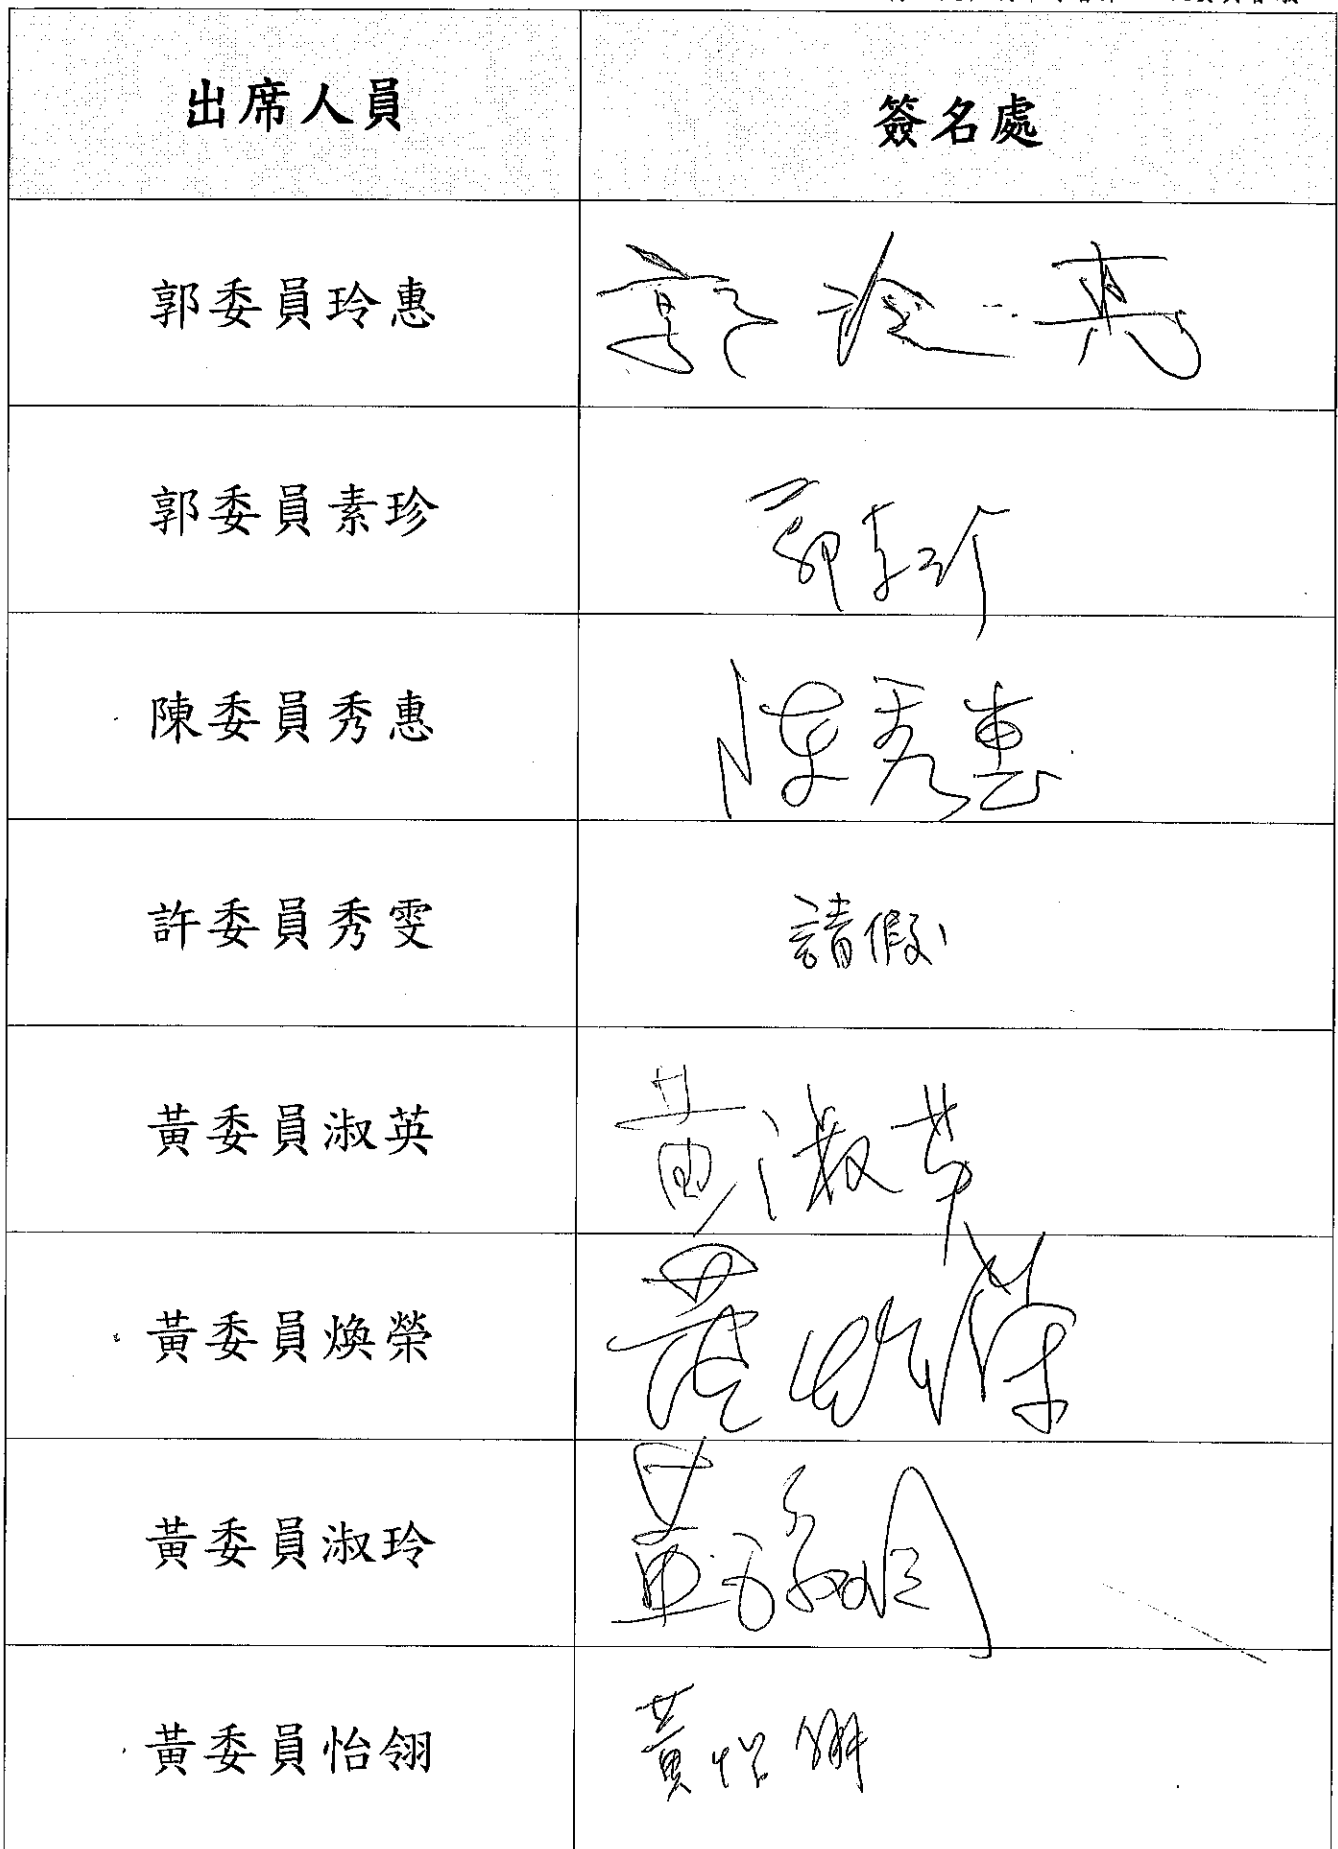 出席人員 簽名處
郭委員玲惠 郭玲惠
郭委員素珍 郭素珍
陳委員秀惠 陳秀惠
許委員秀雯 請假
黃委員淑英 黃淑英
黃委員煥榮 黃煥榮
黃委員淑玲 黃淑玲
黃委員怡翎 黃怡翎